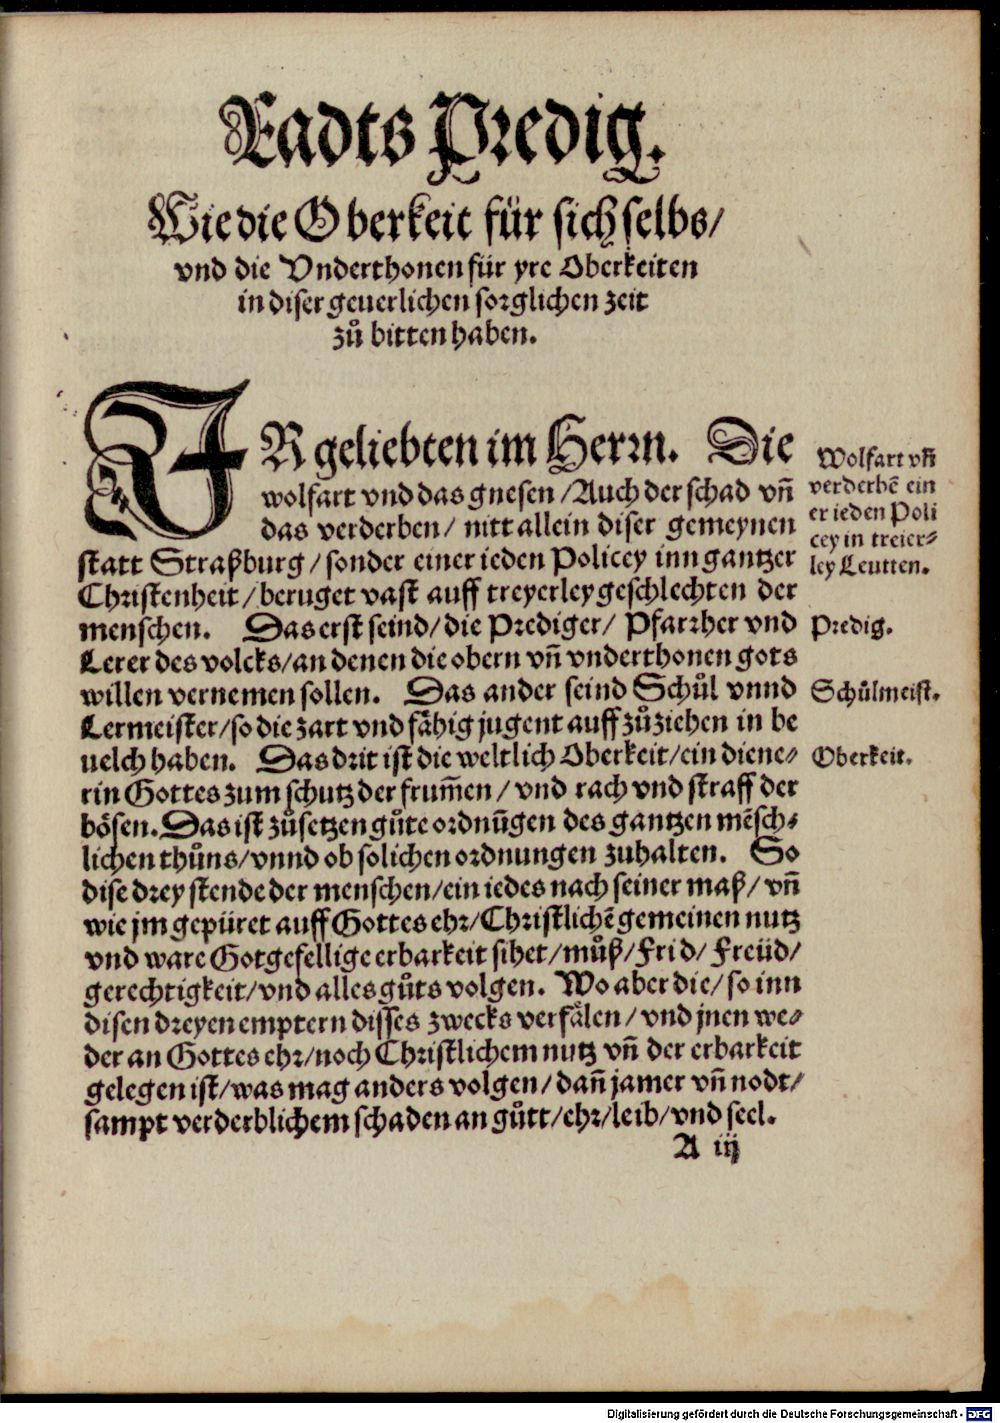 Radts Predig.
Wie die Oberkeit für sich selbs/
vnd die Vnderthonen für yre Oberkeiten
in diser geuerlichen sorglichen zeit
zů bitten haben.
IR geliebten im Herrn. Die
wolfart vnd das gnesen/Auch der schad vn̄
das verderben/ nitt allein diser gemeynen
statt Straßburg/sonder einer ieden Policey inn gantzer
Christenheit/beruget vast auff treyerley geschlechten der
menschen. Das erst seind/die Prediger/ Pfarrher vnd
Lerer des volcks/an denen die obern vn̄ vnderthonen gots
willen vernemen sollen. Das ander seind Schůl vnnd
Lermeister/so die zart vnd fähig jugent auff zůziehen in be
uelch haben. Das drit ist die weltlich Oberkeit/ein diene⸗
rin Gottes zum schutz der frum̄en/ vnd rach vnd straff der
bösen. Das ist zůsetzen gůte ordnūgen des gantzen mēsch⸗
lichen thůns/vnnd ob solichen ordnungen zuhalten. So
dise drey stende der menschen/ein iedes nach seiner maß/vn̄
wie jm gepüret auff Gottes ehr/Christlichē gemeinen nutz
vnd ware Gotgefellige erbarkeit sihet/můß/Frid/ Freüd/
gerechtigkeit/vnd alles gůts volgen. Wo aber die/so inn
disen dreyen emptern disses zwecks verfälen/vnd jnen we⸗
der an Gottes ehr/noch Christlichem nutz vn̄ der erbarkeit
gelegen ist/was mag anders volgen/dan̄ jamer vn̄ nodt/
sampt verderblichem schaden an gůtt/ehr/leib/vnd seel.
A iij
Wolfart vn̄
verderbē ein
er ieden Poli
cey in treier⸗
ley Leutten.
Predig.
Schůlmeist.
Oberkeit.
Digitalisierung gefördert durch die Deutsche Forschungsgemeinschaft - DFG